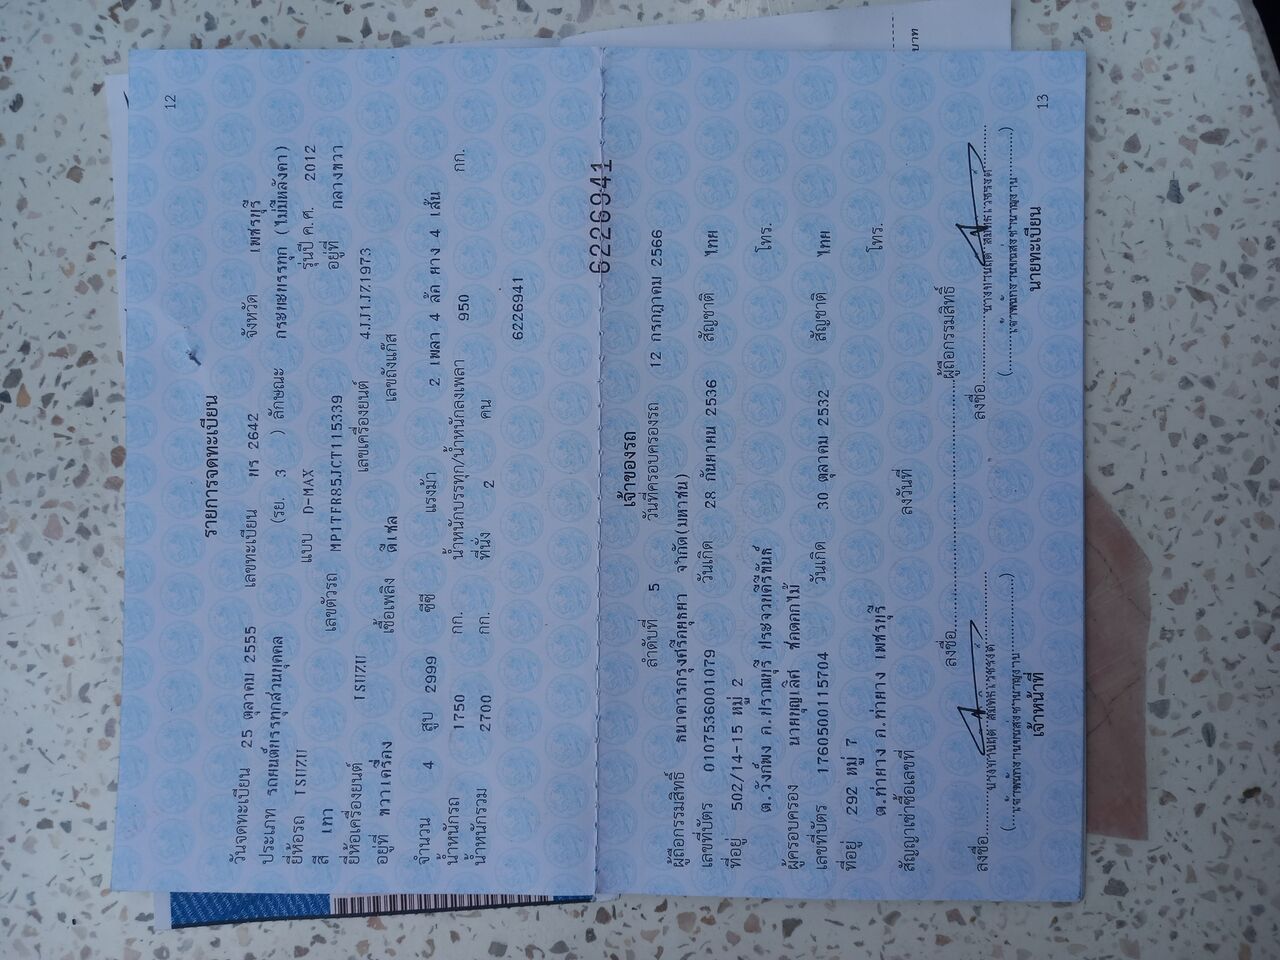 12
รายการจดทะเบียน
วันจดทะเบียน 25 ตุลาคม 2555 เลขทะเบียน 2642 จังหวัด เพชรบุรี
ประเภท รถยนต์บรรทุกส่วนบุคคล (รย. 3 ) ลักษณะ กระบะบรรทุก (ไม่มีหลังคา)
ยี่ห้อรถ ISUZU แบบ D-MAX รุ่นปี ค.ศ. 2012
สี เทา เลขตัวรถ MP1TFR85JCT115339 อยู่ที่ กลางขวา
ยี่ห้อเครื่องยนต์ ISUZU เลขเครื่องยนต์ 4JJ1JZ1973
อยู่ที่ ขวาเครื่อง เชื้อเพลิง ดีเซล เลขถังแก๊ส
จำนวน 4 สูบ 2999 ซีซี แรงม้า 2 เพลา 4 ล้อ ยาง 4 เส้น
น้ำหนักรถ 1750 กก. น้ำหนักบรรทุก/น้ำหนักลงเพลา 950 กก.
น้ำหนักรวม 2700 กก. ที่นั่ง 2 คน
6226941
6226941
เจ้าของรถ
ลำดับที่ 5 วันที่ครอบครองรถ 12 กรกฎาคม 2566
ผู้ถือกรรมสิทธิ์ ธนาคารกรุงศรีอยุธยา จำกัด(มหาชน)
เลขที่บัตร 0107536001079 วันเกิด 28 กันยายน 2536 สัญชาติ ไทย
ที่อยู่ 502/14-15 หมู่ 2 โทร.
ต.วังก์พง อ.ปราณบุรี ประจวบคีรีขันธ์
ผู้ครอบครอง นายบุญเลิศ ช่อดอกไม้
เลขที่บัตร 1760500115704 วันเกิด 30 ตุลาคม 2532 สัญชาติ ไทย
ที่อยู่ 292 หมู่ 7 โทร.
ต.ท่ายาง อ.ท่ายาง เพชรบุรี
สัญญาเช่าซื้อเลขที่ ลงวันที่
ลงชื่อ ผู้ถือกรรมสิทธิ์
ลงชื่อ ลงชื่อ
(เจ้าพนักงานขนส่งชำนาญงาน) (เจ้าพนักงานขนส่งชำนาญงาน)
เจ้าหน้าที่ นายทะเบียน
13
บาท